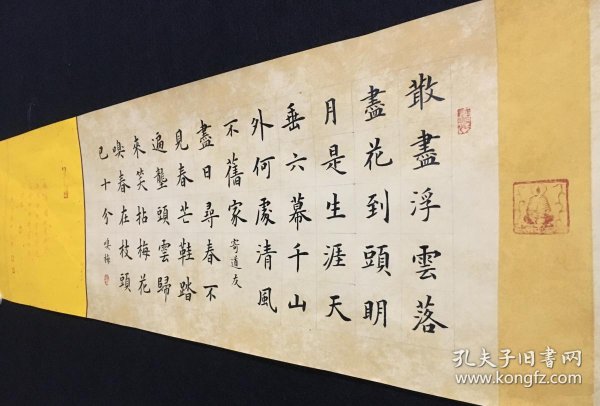 散盡浮雲落
盡花到頭明
月是生涯天
垂六幕千山
外何處清風
不舊家寄道友
盡日尋春不
見春芒鞋踏
遍壟頭雲歸
來笑拈梅花
嗅春在枝頭
已十分嗅梅
孔夫子旧書网
www.kongfz.com